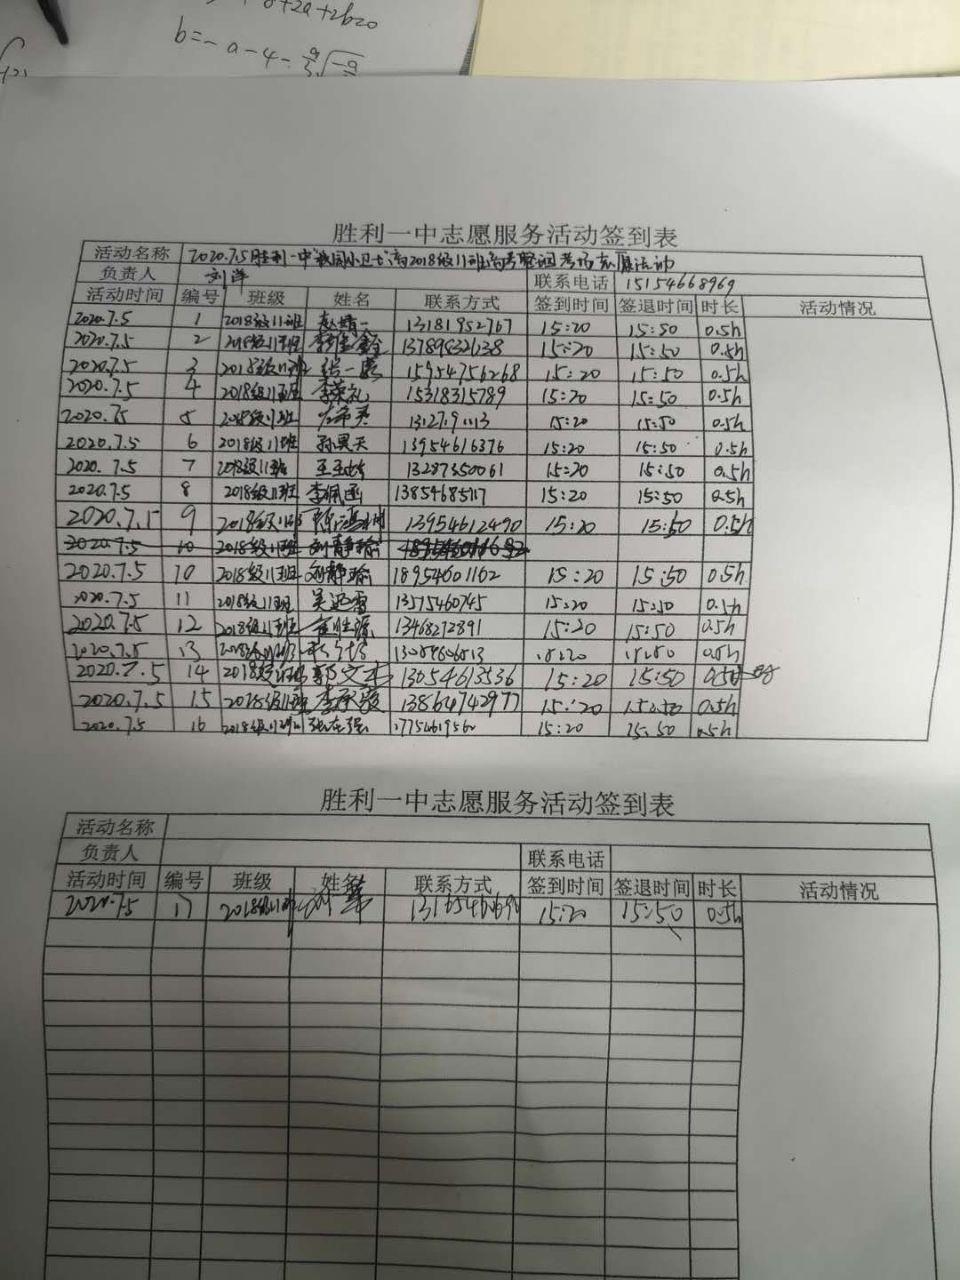 8+2a+2b≥0
b=-a-4-
胜利一中志愿服务活动签到表
活动名称 2020.7.5胜利一中"校园小卫士"高2018级11班高考
负责人 刘洋 联系电话 15154668969
活动时间 编号 班级 姓名 联系方式 签到时间 签退时间 时长 活动情况
2020.7.5 1 2018级11班 赵婧一 13181952767 15:20 15:50 0.5h
2020.7.5 2 2018级11班 15:20 15:50 0.5h
2020.7.5 3 2018级11班 15954756268 15:20 15:50 0.5h
2020.7.5 4 2018级11班 李荣礼 15318315789 15:20 15:50 0.5h
2020.7.5 5 2018级11班 15:20 15:50 0.5h
2020.7.5 6 2018级11班 孙昊天 13954616376 15:20 15:50 0.5h
2020.7.5 7 2018级11班 13287350061 15:20 15:50 0.5h
2020.7.5 8 2018级11班 李佩函 13854685117 15:20 15:50 0.5h
2020.7.5 9 2018级11班 13954612490 15:20 15:50 0.5h
2020.7.5 10 2018级11班 刘静瑜
2020.7.5 10 2018级11班 刘静瑜 18954601162 15:20 15:50 0.5h
2020.7.5 11 2018级11班 吴迅雷 13575460745 15:20 15:50 0.5h
2020.7.5 12 2018级11班 13468272891 15:20 15:50 0.5h
2020.7.5 13 0.5h
2020.7.5 14 2018级11班 郭文杰 13054613536 15:20 15:50 0.5h
2020.7.5 15 2018级11班 李承骏 13864742977 15:20 15:50 0.5h
2020.7.5 16 张在强 15:20 15:50 0.5h
胜利一中志愿服务活动签到表
活动名称
负责人 联系电话
活动时间 编号 班级 姓名 联系方式 签到时间 签退时间 时长 活动情况
2020.7.5 17 2018级11班 15:20 15:50 0.5h